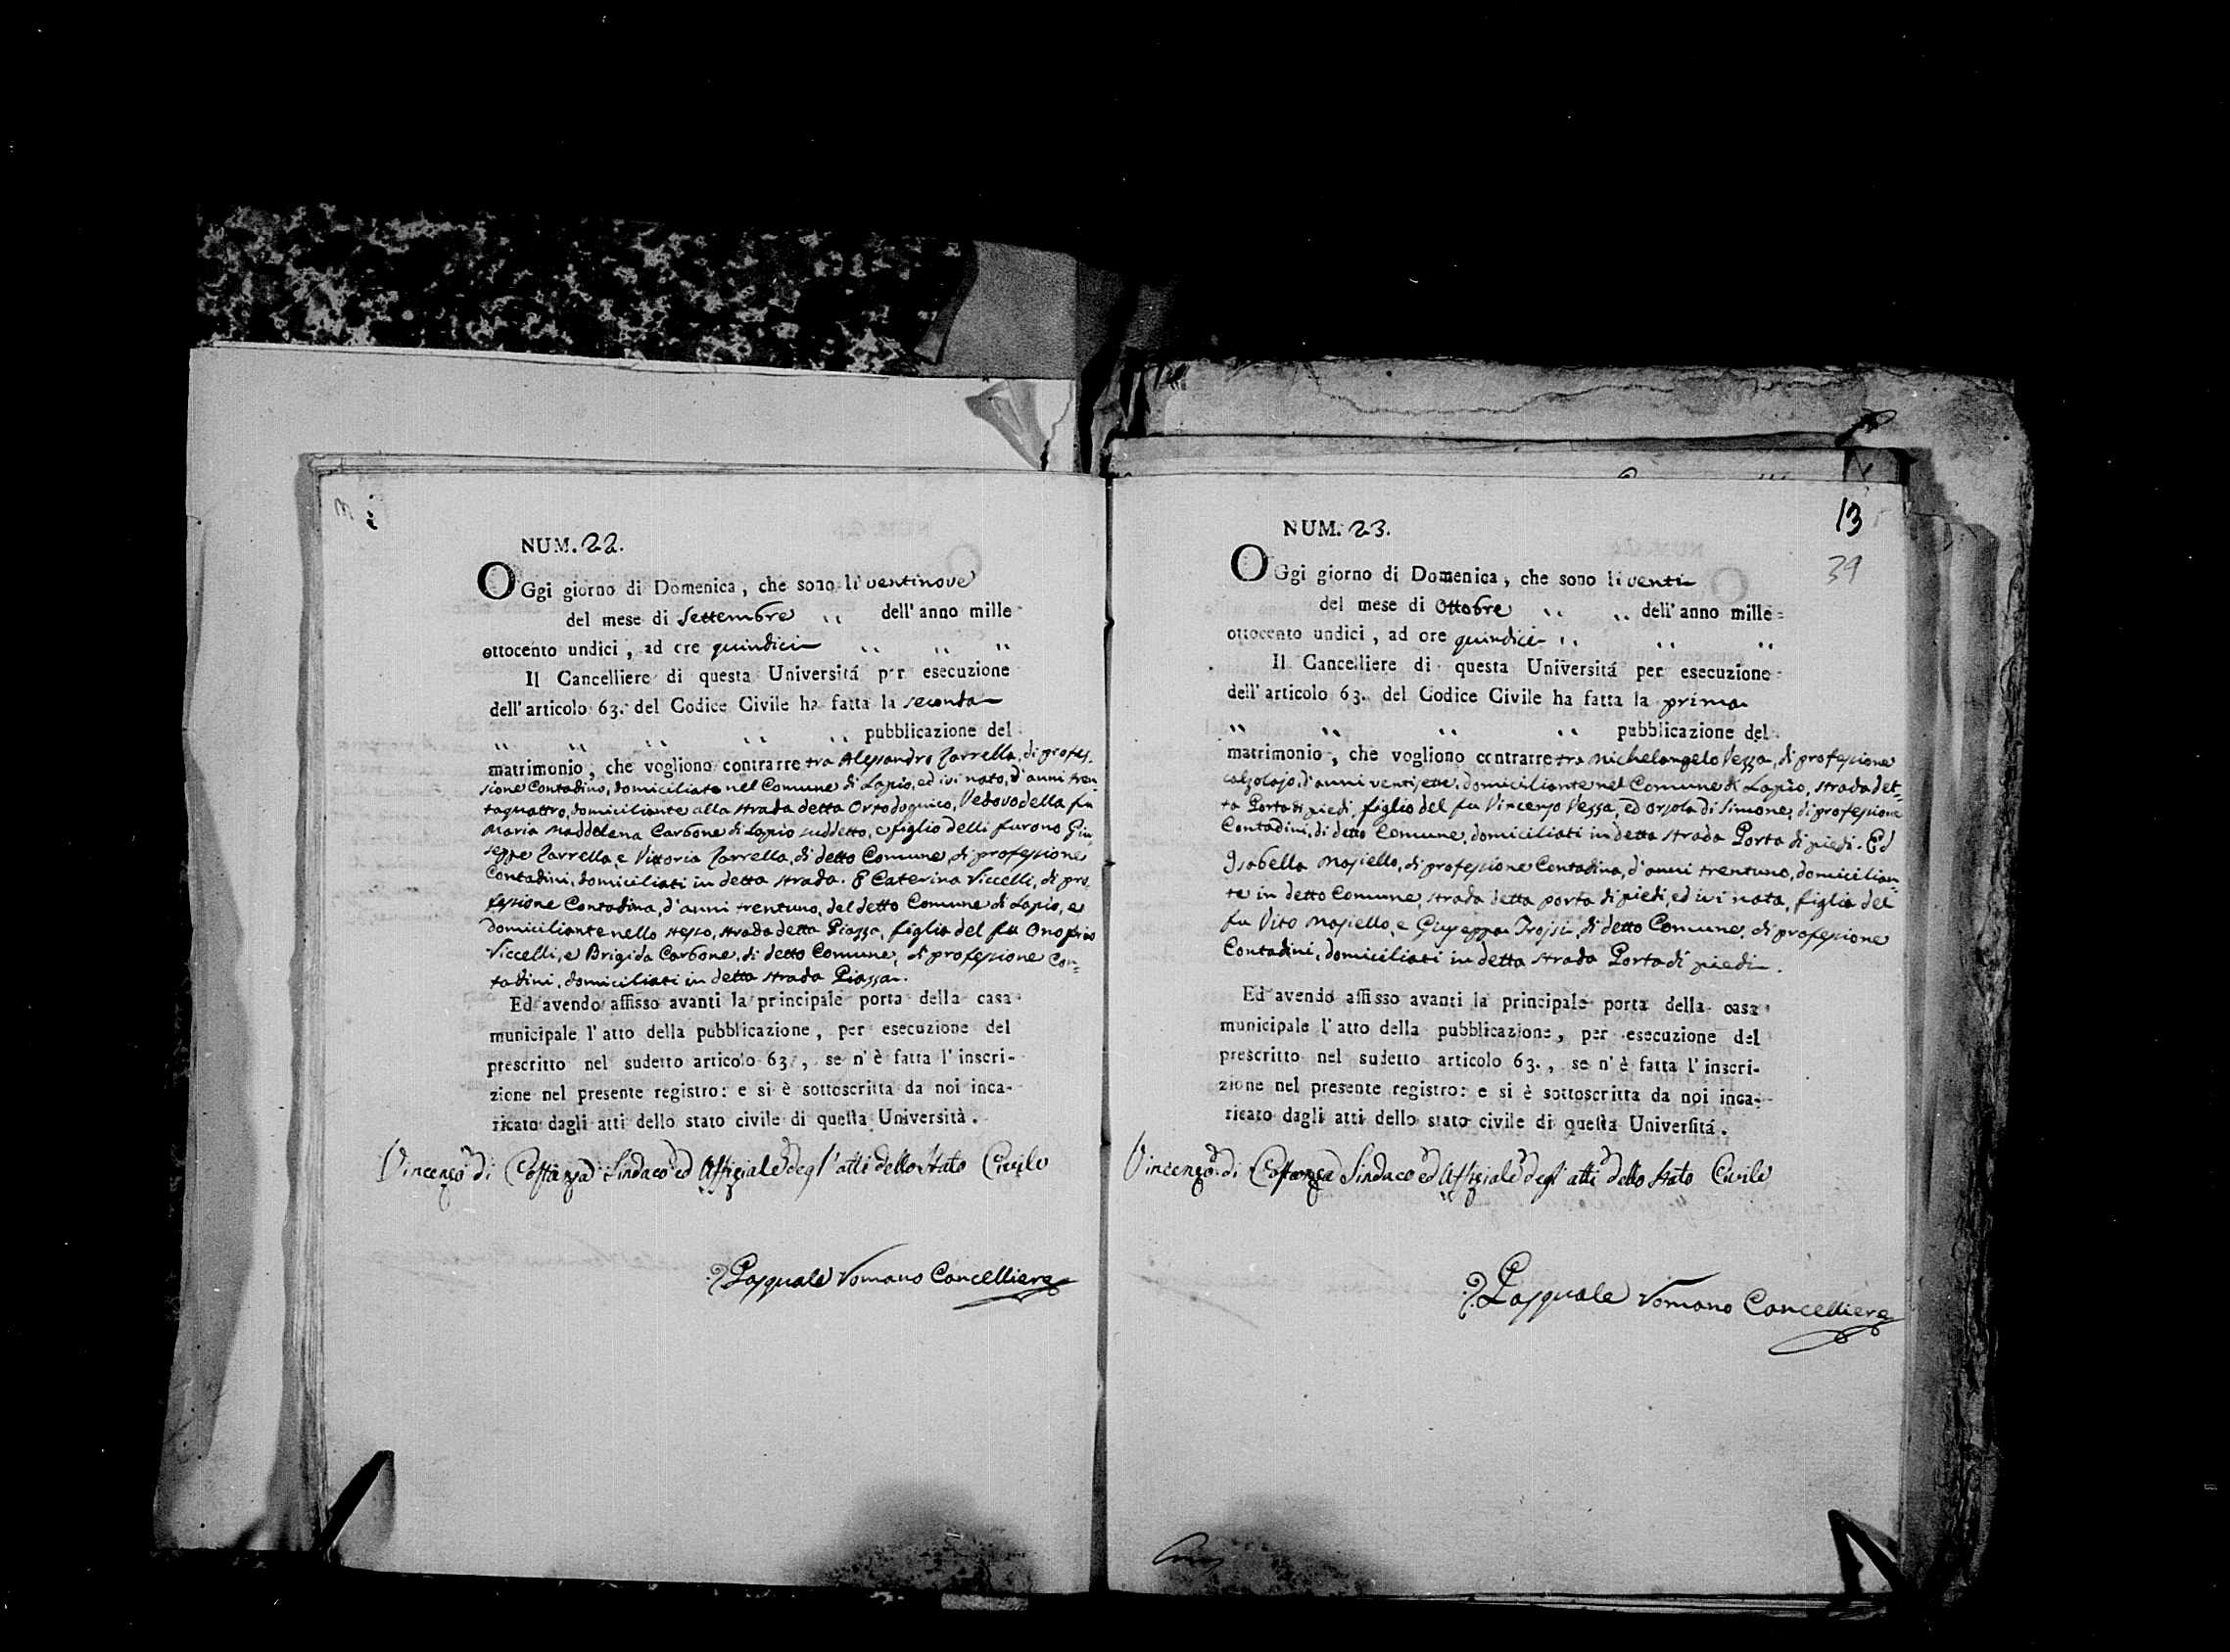 NUM. 22.
OGgi giorno di Domenica, che sono li ventinove
del mese di Settembre ,, dell'anno mille
ottocento undici, ad ore quindici ,, ,, ,,
Il Cancelliere di questa Universitá per esecuzione
dell'articolo 63. del Codice Civile ha fatta la seconda
,, ,, ,, ,, ,, pubblicazione del
matrimonio, che vogliono contrarre tra Alessandro Zarrella, di profes-
sione Contadino, domiciliato nel Comune di Lapio, ed ivi nato, d'anni tren
taquattro, domiciliante alla strada detta Ortodoguico, Vedovo della fu
Maria Maddalena Carbone di Lapio suddetto, e figlio delli furono Giu
seppe Zarrella e Vittoria Zarrella, di detto Comune, di professione
Contadini, domiciliati in detta strada. E Caterina Viccelli, di pro
fessione Contadina, d'anni trentuno, del detto Comune di Lapio, e
domiciliante nello stesso, strada detta Piazza, figlia del fu Onofrio
Viccelli, e Brigida Carbone, di detto Comune, di professione Con-
tadini, domiciliati in detta strada Piazza.
Ed avendo affisso avanti la principale porta della casa
municipale l'atto della pubblicazione, per esecuzione del
prescritto nel sudetto articolo 63., se n'è fatta l'inscri-
zione nel presente registro: e si è sottoscritta da noi inca-
ricato dagli atti dello stato civile di questa Università.
Vincenzo di Costanza Sindaco ed Uffiziale degl'atti dello Stato Civile
Pasquale Romano Cancelliere
13
39
NUM. 23.
OGgi giorno di Domenica, che sono li venti
del mese di Ottobre ,, ,, dell'anno mille
ottocento undici, ad ore quindici ,, ,, ,,
Il Cancelliere di questa Universitá per esecuzione
dell'articolo 63. del Codice Civile ha fatta la prima
,, ,, ,, ,, pubblicazione del
matrimonio, che vogliono contrarre tra Michelangelo Vezza, di professione
calzolajo, d'anni ventisette, domiciliante nel Comune di Lapio, strada det-
ta Porta di piedi, figlio del fu Vincenzo Vezza, ed Orsola di Simone, di professione
Contadini, di detto Comune, domiciliati in detta strada Porta di piedi. Ed
Isabella Masiello, di professione Contadina, d'anni trentuno, domicilian-
te in detto Comune, strada detta porta di piedi, ed ivi nata, figlia del
fu Vito Masiello, e Giuseppa Troisi, di detto Comune, di professione
Contadini, domiciliati in detta strada Porta di piedi.
Ed avendo affisso avanti la principale porta della casa
municipale l'atto della pubblicazione, per esecuzione del
prescritto nel sudetto articolo 63., se n'è fatta l'inscri-
zione nel presente registro: e si è sottoscritta da noi inca-
ricato dagli atti dello stato civile di questa Universitá.
Vincenzo di Costanza Sindaco ed Uffiziale degl'atti dello Stato Civile
Pasquale Romano Cancelliere